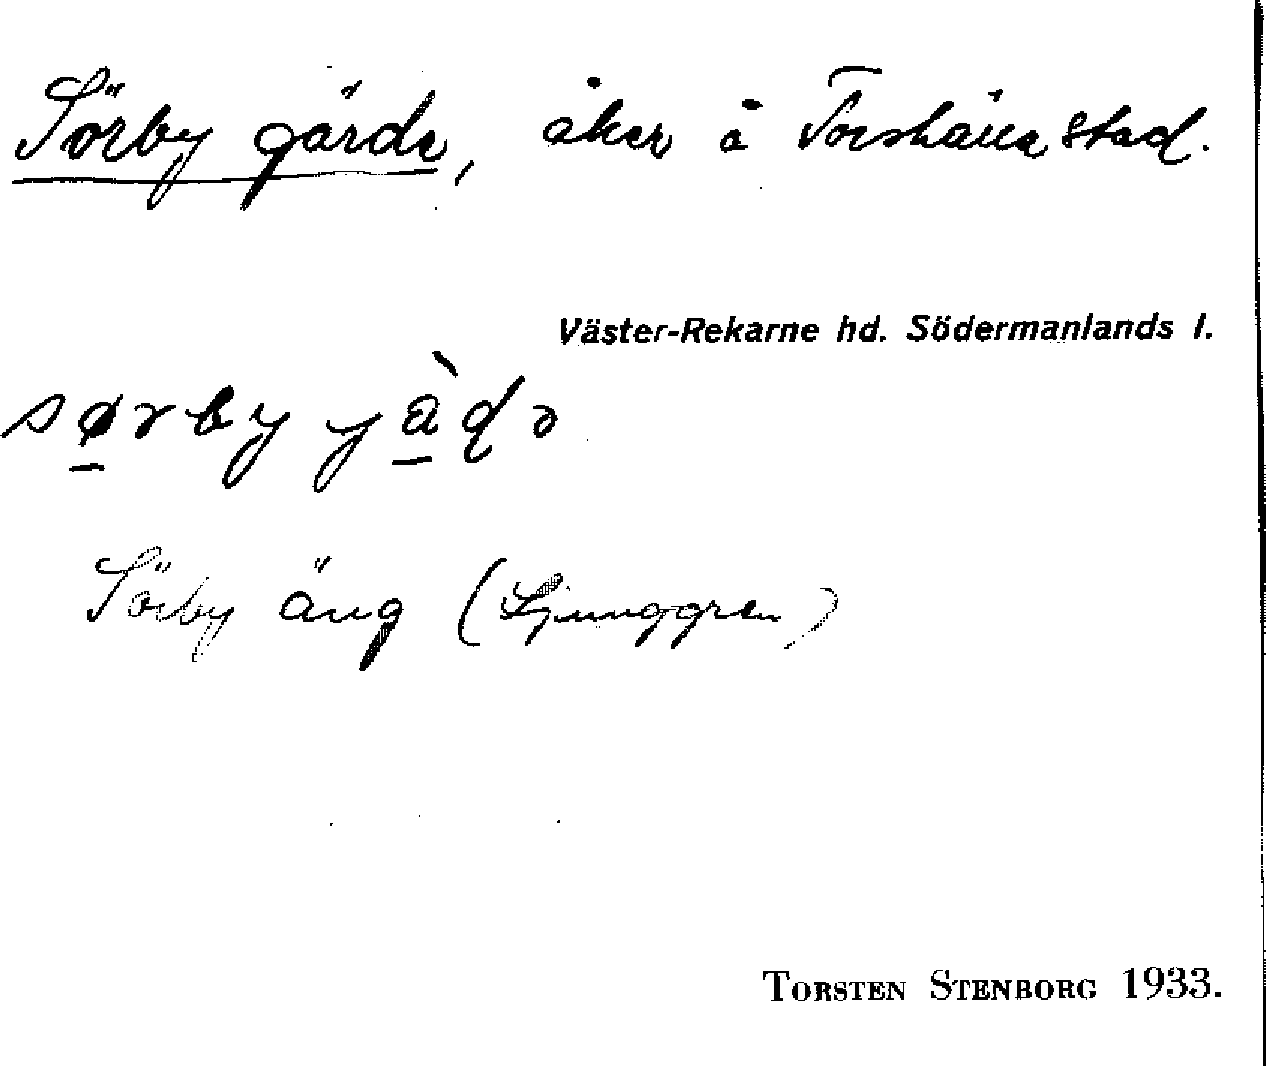 Sörby gärde, åker å Torshälla stad.
Väster-Rekarne hd. Södermanlands l.
sørby jàɖə
Sörby äng (Ljunggren)
TORSTEN STENBORG 1933.